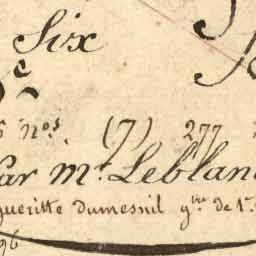 Six
nos. (7) 277
Par mr. Leblan
gueritte dumesnil gbre de 1.
96